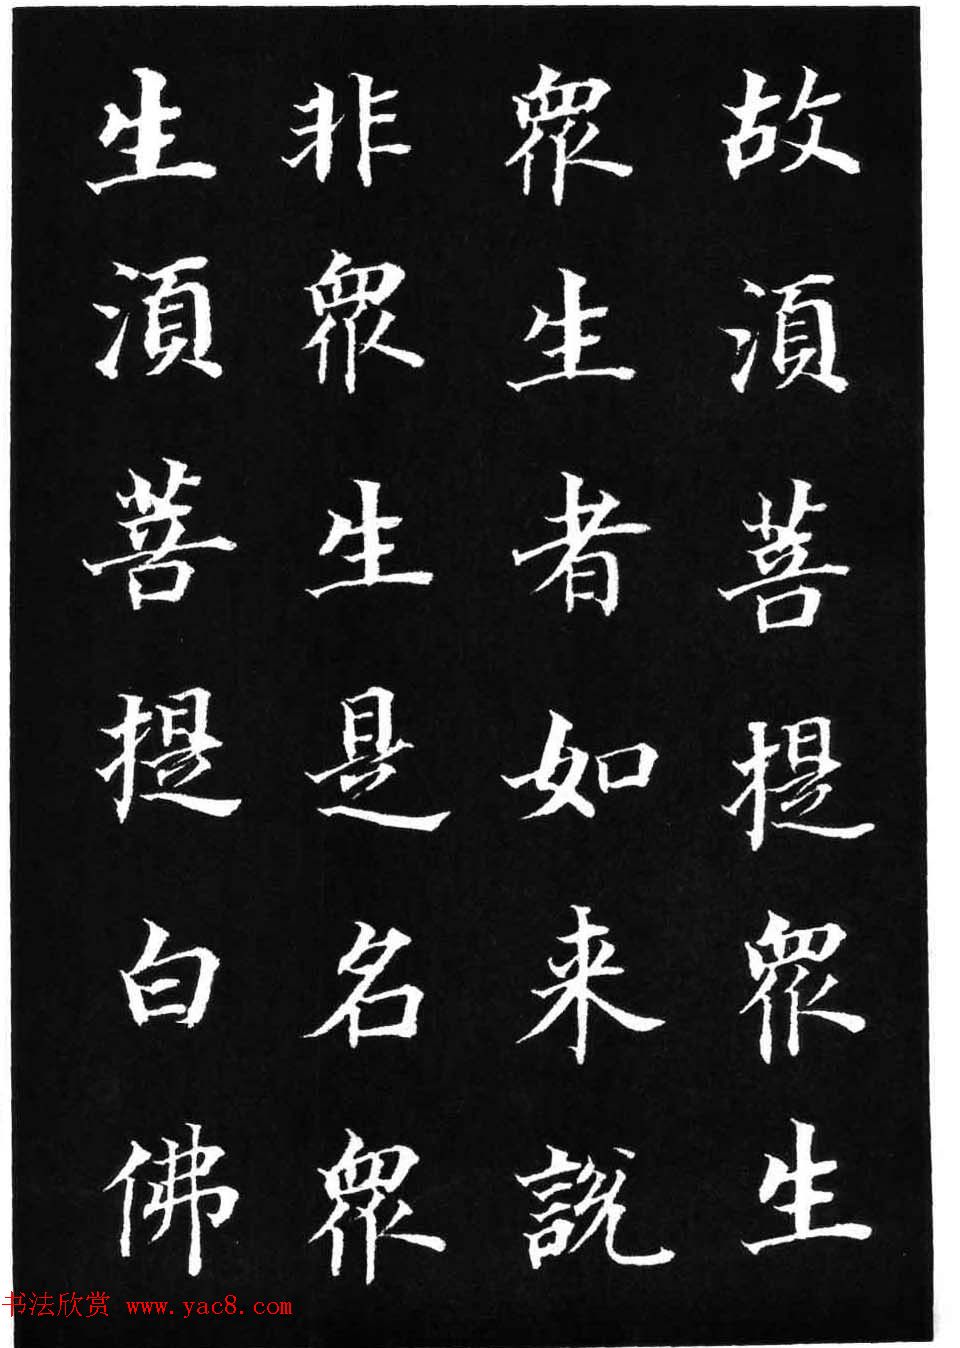 故須菩提衆生
衆生者如来説
非衆生是名衆
生須菩提白佛
书法欣赏 www.yac8.com